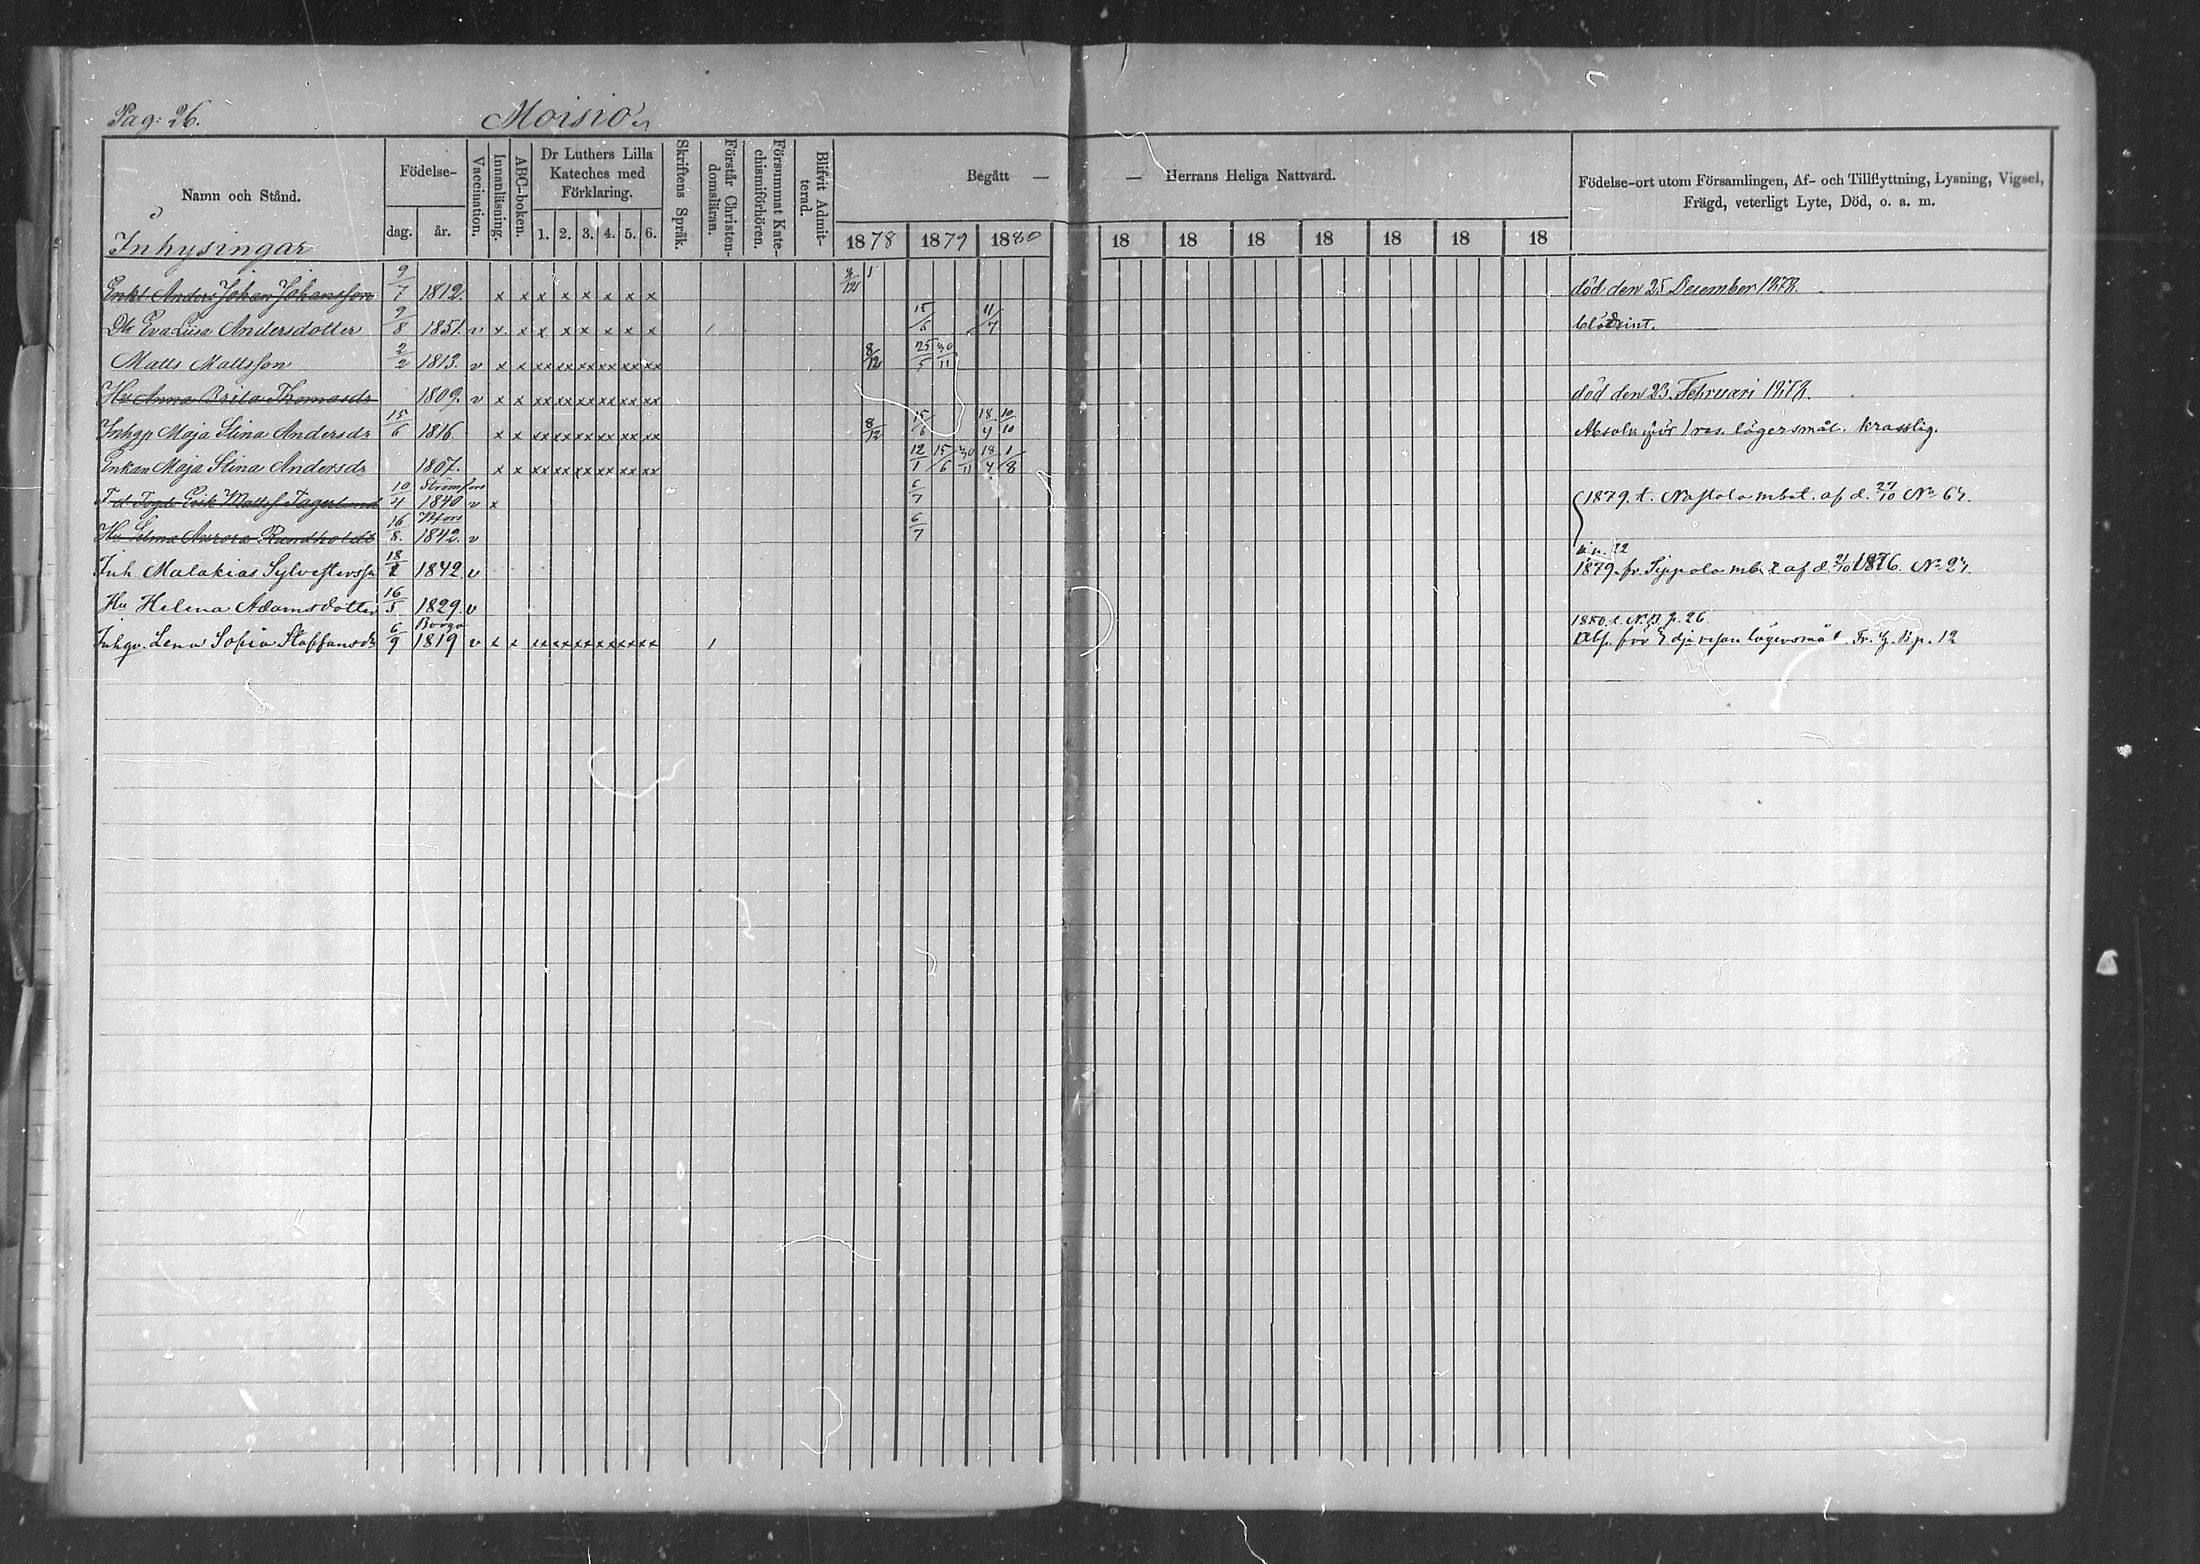 Pag: 26. Moisio
Namn och Stånd. Födelse- dag. år. Vaccination. Innanläsning. ABC-boken. Dr Luthers Lilla Kateches med Förklaring. 1. 2. 3. 4. 5. 6. Skriftens Språk. Förstår Christendomsläran. Försummat Katechismiförhören. Blifvit Admitterad. Begått — — Herrans Heliga Nattvard. Födelse-ort utom Församlingen, Af- och Tillflyttning, Lysning, Vigsel, Frägd, veterligt Lyte, Död, o. a. m.
1878 1879 1880 18 18 18 18 18 18 18
Inhysingar
Enkl Anders Johan Johansson 9/7 1812. x x x x x x x x död den 25 Desember 1878.
Dtr Eva Lisa Andersdotter 9/8 1851. v x x x x x x x x 15/6 11/7
Matts Mattsson 2/2 1813. v x x xx xx xx xx xx xx 8/12 25/5 30/11
Hu Anna Brita Thomasdr 1809. v x x xx xx xx xx xx xx död den 23 Februari 1878.
Inhgp Maja Stina Andersdr 15/6 1816 x x xx xx xx xx xx xx 8/12 15/6 18/4 10/10 för 1 res. lägersmål. krasslig.
Enkan Maja Stina Andersdr 1807. x x xx xx xx xx xx xx 12/1 15/6 30/11 18/4 1/8
Erik Matts Fagerlund 10/4 Strömfors 1840 v x 6/7 1879. t. Nastola mbet. af d. 27/10 No 64.
Hu Selma Aurora Randholdt 16/8. 1842. v 6/7
Inh Malakias Sylvestersson 18/2 1842 v 1879. fr. Sippola mb. af d. 21/10 1876. No 24.
Hu Helena Adamsdotter 16/5 1829. v
Inhgv. Lena Sofia Staffansdr 6/9 Borgo 1819 v x x xx xx xx xx xx xx 1 1880. t. N. B. p. 26.
för 2 dje resan lägersmål. Fr. B p. 12